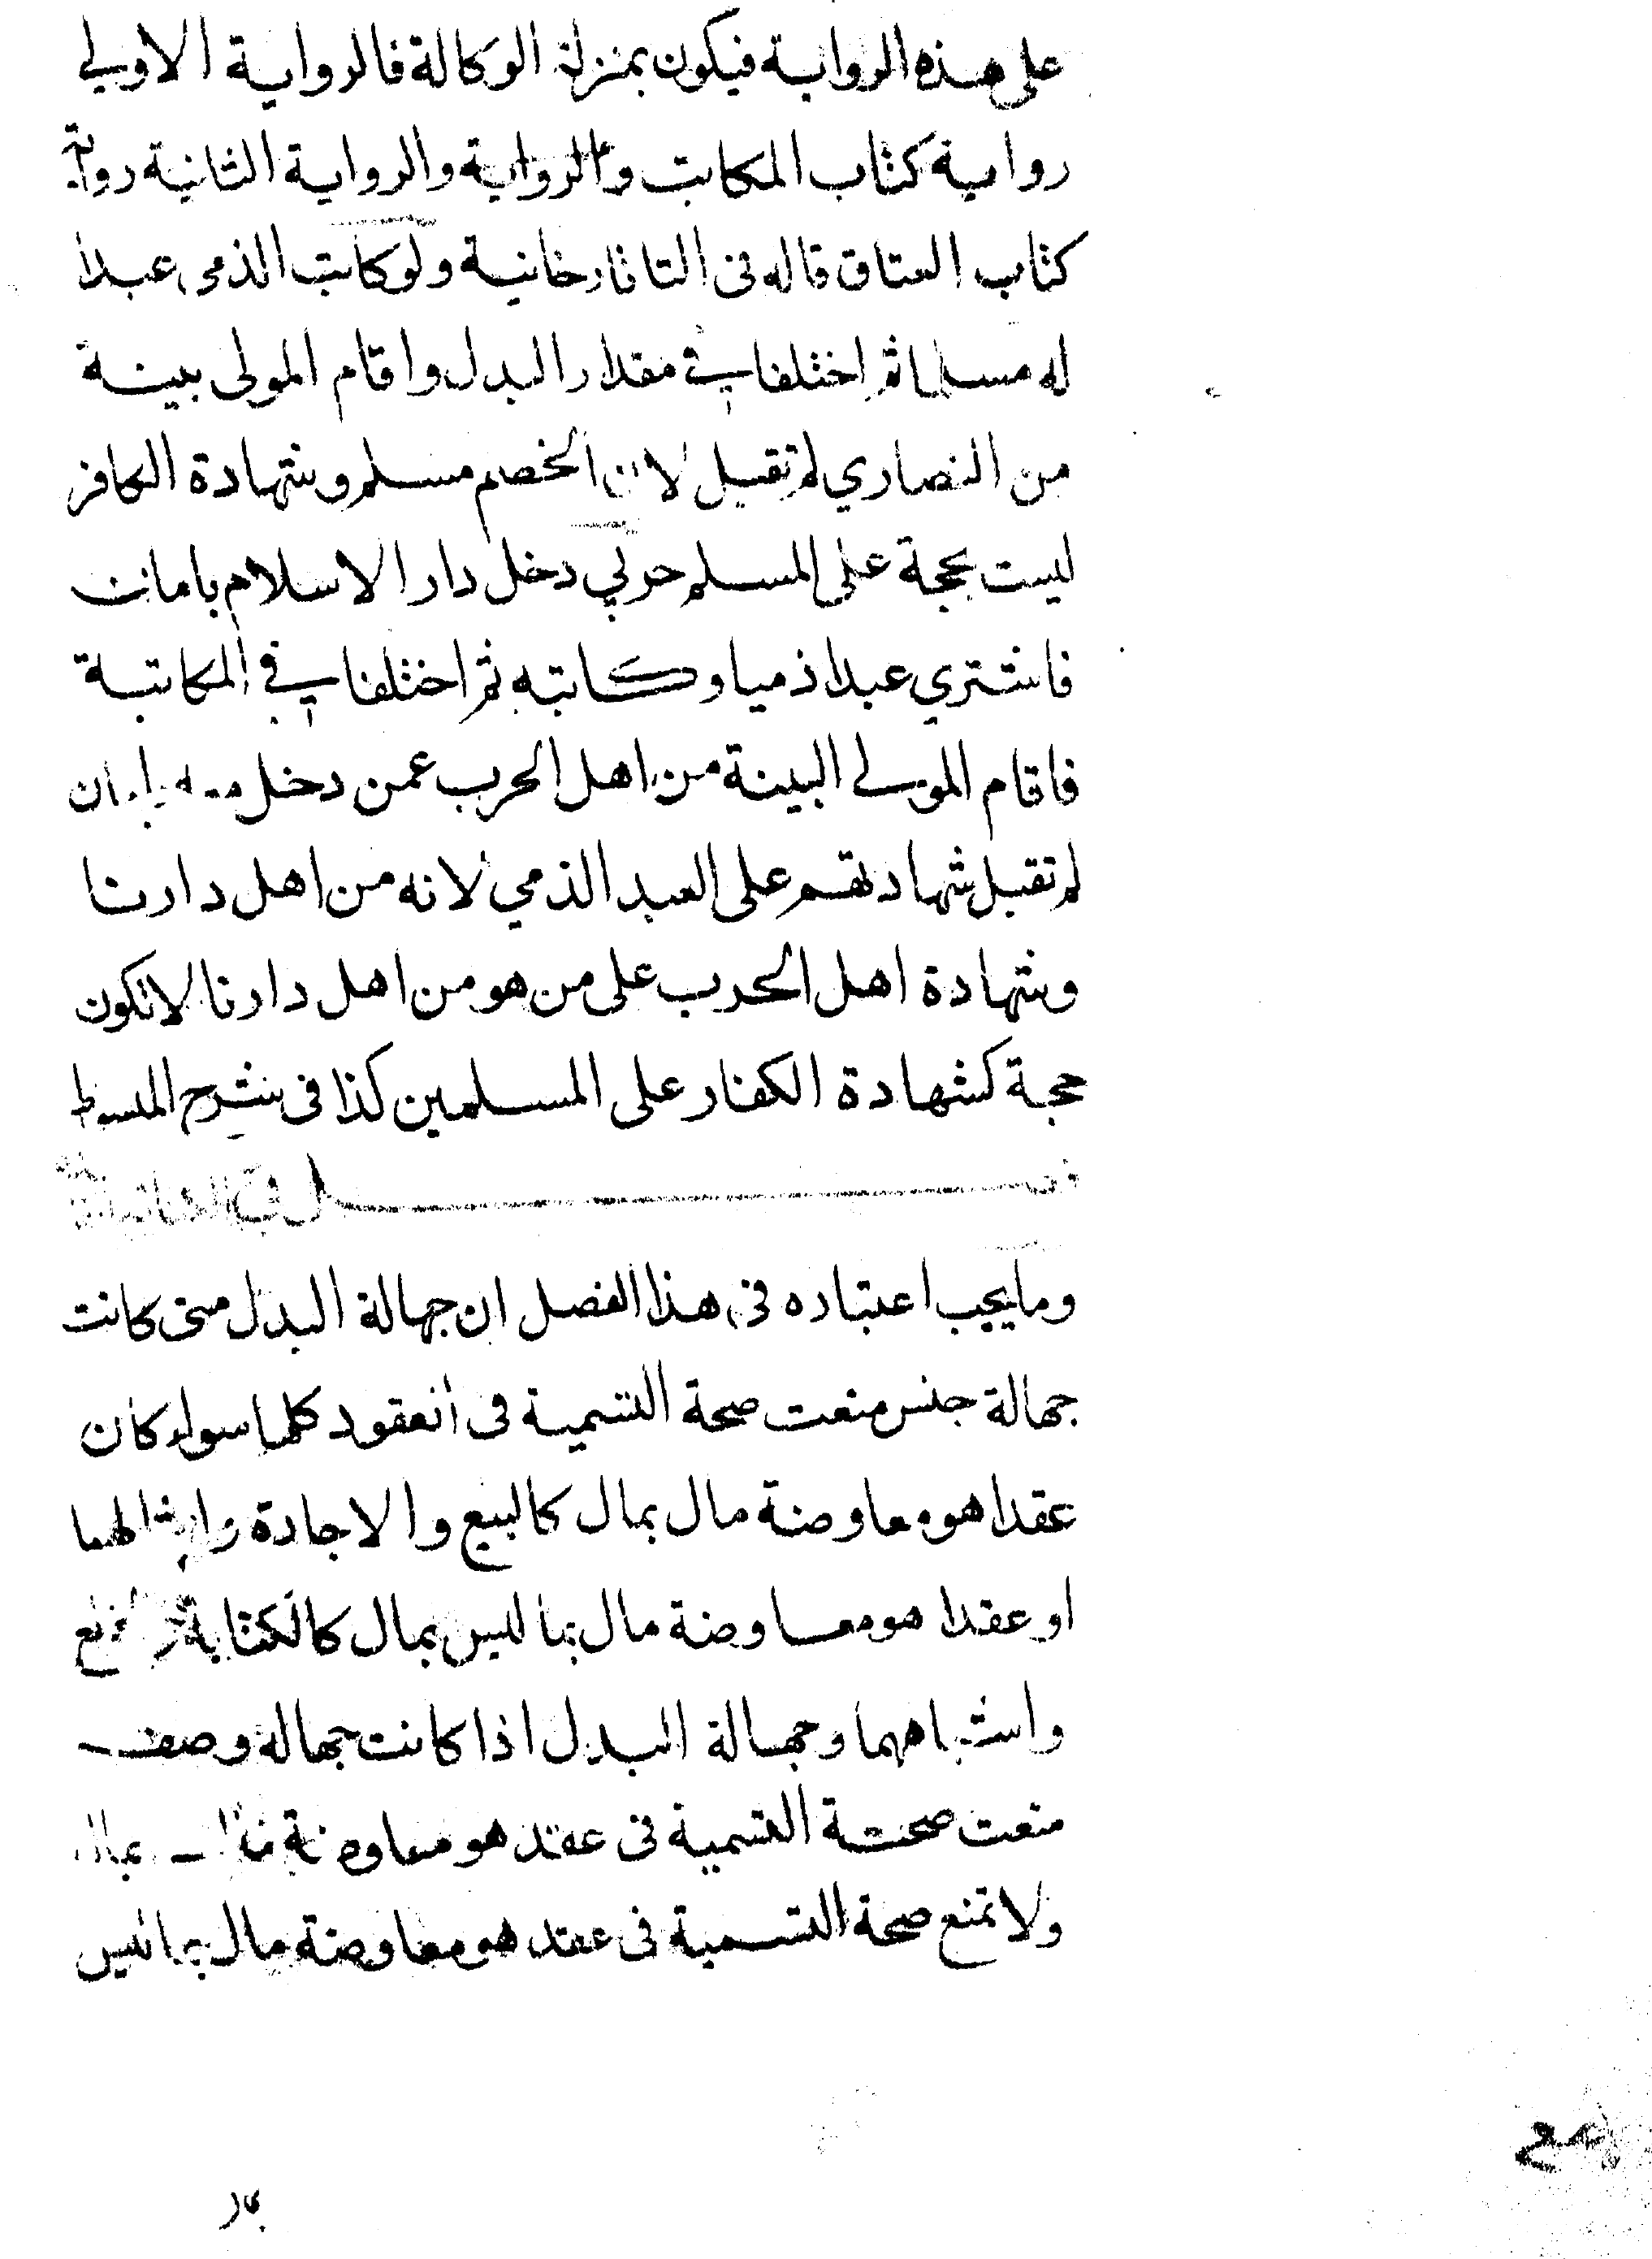 على هذه الرواية فيكون بمنزلة الوكالة فالرواية الاولى
رواية كتاب المكاتب والرواية والرواية الثانية رواية
كتاب العتاق قاله فى التاتارخانية ولو كاتب الذمى عبدا
له مسلما ثم اختلفا في مقدار البدل واقام المولى بينة
من النصاري لم تقبل لان الخصم مسلم وشهادة الكافر
ليست بحجة على المسلم حربي دخل دار الاسلام بامان
فاشتري عبدا ذميا وكاتبه ثم اختلفا في المكاتبة
فاقام المولى البينة من اهل الحرب عمن دخل معه بامان
لم تقبل شهادتهم على العبد الذمي لانه من اهل دارنا
وشهادة اهل الحرب على من هو من اهل دارنا لا تكون
حجة كشهادة الكفار على المسلمين كذا فى شرح المبسوط
فصل فى
وما يجب اعتباره فى هذا الفصل ان جهالة البدل متى كانت
جهالة جنس منعت صحة التسمية فى العقود كلها سواء كان
عقدا هو معاوضة مال بمال كالبيع والاجارة وامثالهما
او عقدا هو معاوضة مال بما ليس بمال كالكتابة والخلع
واشباههما وجهالة البدل اذا كانت جهالة وصف
منعت صحة التسمية فى عقد هو معاوضة مال بمال
ولا تمنع صحة التسمية فى عقد هو معاوضة مال بما ليس